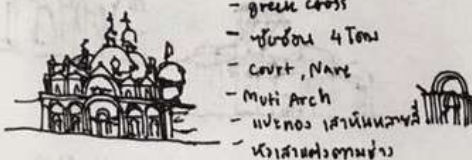 - green cross
- ซับซ้อน 4 โดม
- court, Nave
- Muti Arch
- แปะทอง เสาหินหลายสี
- หัวเสาแต่งตามช่าง